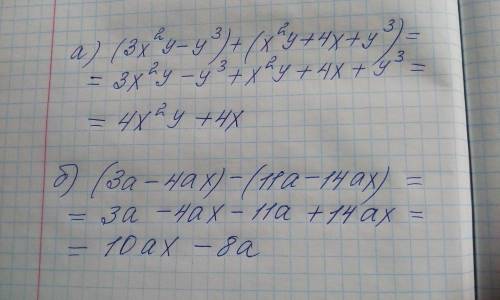 а) (3x²y-y³)+(x²y+4x+y³)=
= 3x²y-y³+x²y+4x+y³=
= 4x²y+4x
б) (3a-4ax)-(11a-14ax)=
= 3a-4ax-11a+14ax=
= 10ax-8a